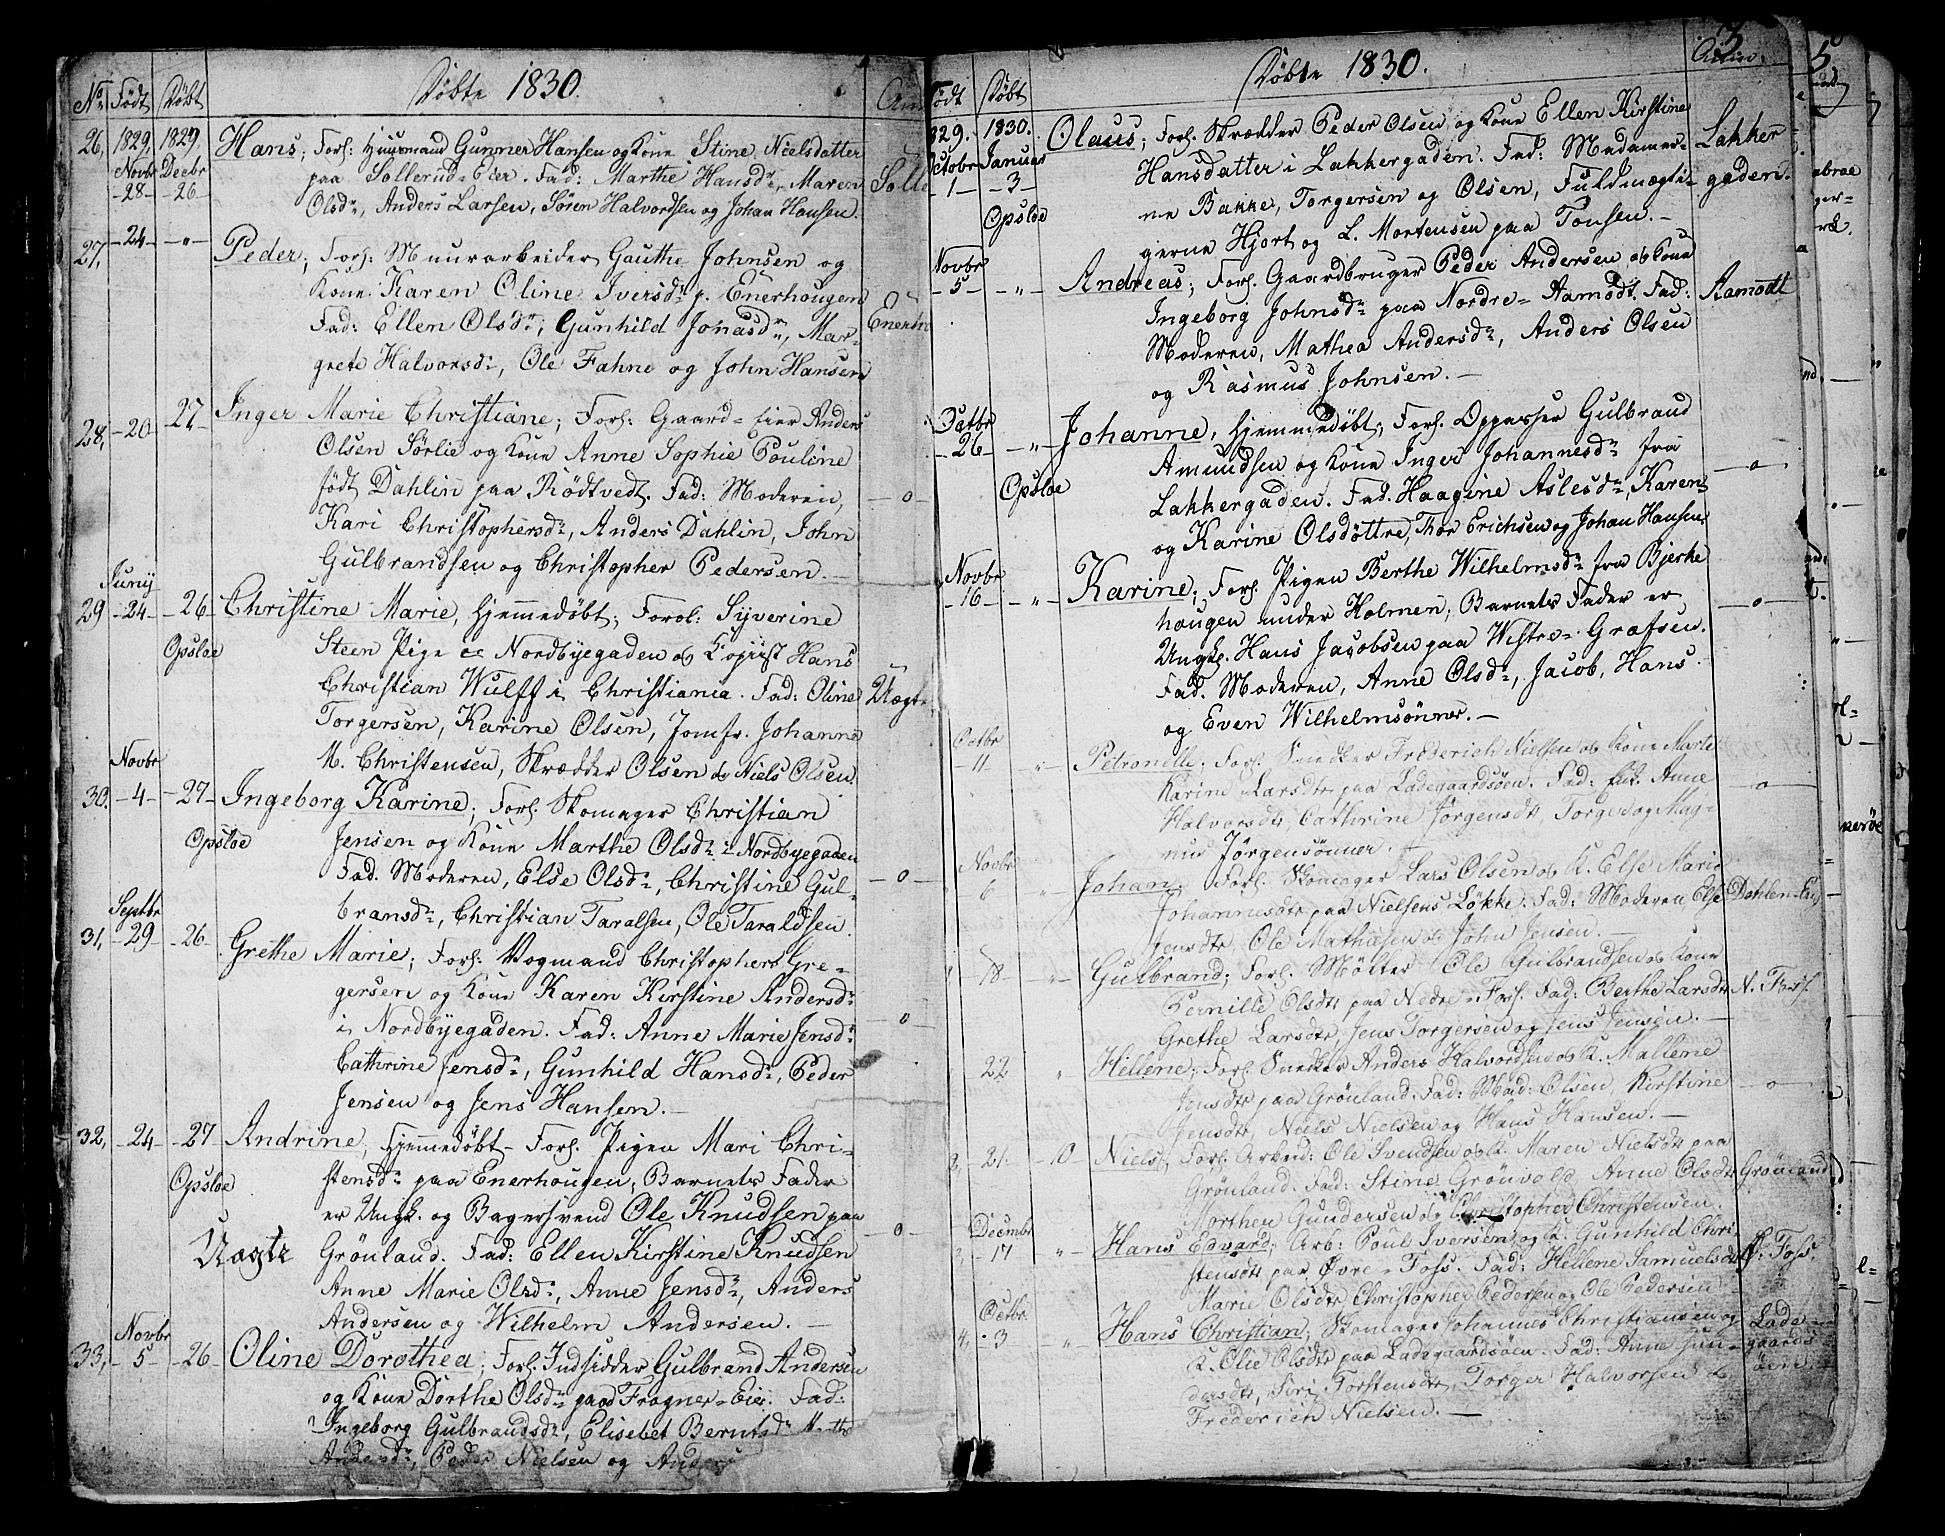 Døbte 1830.
No Født Døbt
26, 1829, 1829, Hans; Forl: Huusmand Gunner Hansen og Kone Stine Nielsdatter
Novbr Decbr paa Sollerud-Eier. Fad: Marthe Hansdr, Maren
-28- -26- Olsdr, Anders Larsen, Søren Halvordsen og Johan Hansen.
27, -24- -"- Peder; Forl: Muurarbeider Gauthe Johnsen og
Kone Karen Oline Iversdr p. Enerhougen
Fad: Ellen Olsdr; Gunhild Jonasdr, Mar-
grete Halvorsdr, Ole Fahne og John Hansen
28, -20- 27- Inger Marie Christiane; Forl: Gaard-eier Anders
Olsen Sørlie og Kone Anne Sophie Pouline
født Dahlin paa Rødtvedt. Fad: Moderen, -o-
Kari Christophersdr, Anders Dahlin, John
Gulbrandsen og Christopher Pedersen.-
Juny
29 -24- -26- Christine Marie, hjemmedøbt; Foræl: Syverine
Opsloe Steen Pige Nordbyegaden og Copiist Hans
Christian Wulff i Christiania. Fad: Oline Uægte
Torgersen, Karine Olsen, Jomfr. Johanne
M. Christensen, Skrædder Olsen og Niels Olsen.
Novbr
30. -4- -27- Ingeborg Karine; Forl. Skomager Christian
Opsloe Jensen og Kone Marthe Olsdr i Nordbyegaden
Fad. Moderen, Else Olsdr, Christine Gul- -o-
bransdr, Christian Taralsen, Ole Taraldsen.
Septbr
31, -29 -26- Grethe Marie; Forl: Vogmand Christopher Gre-
gersen og Kone Karen Kirstine Andersdr
i Nordbyegaden. Fad: Anne Marie Jensdr -o-
Cathrine Jensdr, Gunhild Hansdr, Peder
Jensen og Jens Hansen.-
32, -24- -27 Andrine, Hjemmedøbt- Forl. Pigen Mari Chri-
Opsloe stensdr paa Enerhougen; Barnets Fader
er Ungk. og Bagersvend Ole Knudsen paa
Uægte Grønland. Fad: Ellen Kirstine Knudsen -o-
Anne Marie Olsdr, Anne Jensdr, Anders
Andersen og Wilhelm Andersen. -
Novbr
33, -5- -26- Oline Dorothea; Forl. Indsidder Gulbrand Andersen
og Kone Dorthe Olsdr paa Frogner-Eie. Fad:
Ingeborg Gulbrandsdr, Elisebet Berntsdr Marthe
Andersdr, Peder Nielsen og Anders
Døbte 1830.
Født Døbt
829. 1830. Olaus; Forl. Skrædder Peder Olsen og Kone Ellen Kirstine
Octobr Januar Hansdatter i Lakkergaden. Fad: Madamer- Lakker
-1- -3- ne Bakke, Torgersen og Olsen, Fuldmægti- gaden.
Opsloe gerne Hjort og L. Mortensen paa Tonsen.-
Novbr
-5- -"- Andreas; Forl. Gaardbruger Peder Andersen og Kone
Ingeborg Johnsdr paa Nordre-Aamodt. Fad: Aamodt
Moderen, Mathea Andersdr, Anders Olsen
og Rasmus Johnsen.-
Octbr
-26- -"- Johanne, hjemmedøbt; Forl. Oppasser Gulbrand
Amundsen og Kone Inger Johannesdr fra
Opsloe Lakkergaden. Fad. Haagine Aslesdr, Karen -o-
og Karine Olsdøttre, Thor Erichsen og Johan Hansen
Novbr
-16- -"- Karine; Forl. Pigen Berthe Wilhelmsdr fra Bjerke
hougen under Holmen; Barnets Fader er -o-
Ungk. Hans Jacobsen paa Westre-Grafsen.
Fad. Moderen, Anne Olsdr, Jacob, Hans
og Even Wilhelmsønner.-
Octbr
-11- "- Petronelle; Forl. Snedker Frederich Nielsen og Kone Marte
Karine Larsdtr paa Ladegaardsøen. Fad: Anne -o-
Halvorsdtr, Cathrine Jørgensdtr, Torger og Mag-
nus Jørgensønner.-
Novbr
6 "- Johan; Forl. Skomager Lars Olsen og K. Else Marie
Johannesdtr paa Nielsens Løkke. Fad: Moderen Else Dahlen-Eie
Jensdtr, Ole Mathiesen og John Jensen.-
-18- "- Gulbrand; Forl. Møller Ole Gulbrandsen og Kone
Pernille Olsdtr paa Nedre-Foss. Fad: Berthe Larsdtr N. Foss.
Grethe Larsdtr, Jens Torgersen og Jens Jensen.-
22 " Hellene; Forl. Snedker Anders Halvordsen og K. Mallene
Jensdtr paa Grønland. Fad: Mad: Olsen, Kirstine -o-
Jensdtr, Niels Nielsen og Hans Hansen.-
2, -21- -10- Niels; Forl. Arbeid: Ole Svendsen og K. Maren Nielsdtr paa
Grønland. Fad: Stine Grönvold, Anne Olsdtr Grønland
Morthen Gundersen og Christopher Christensen.
Decembr
3, -17 "- Hans Edvard; Arb: Poul Iversen og K. Gunhild Chri-
stensdtr paa Øvre-Foss. Fad: Hellene Samuelsdtr Ø: Foss.
Marie Olsdtr Christopher Pedersen og Ole Pedersen.
Octbr.
4, -3 -"- Hans Christian; Skomager Johannes Christiansen og Lade-
K. Olie Olsdtr paa Ladegaardsøen. Fad: Anne Gun- gaards
dersdtr, Siri Torstensdtr, Torger Halvorsen & øen
Frederich Nielsen.-